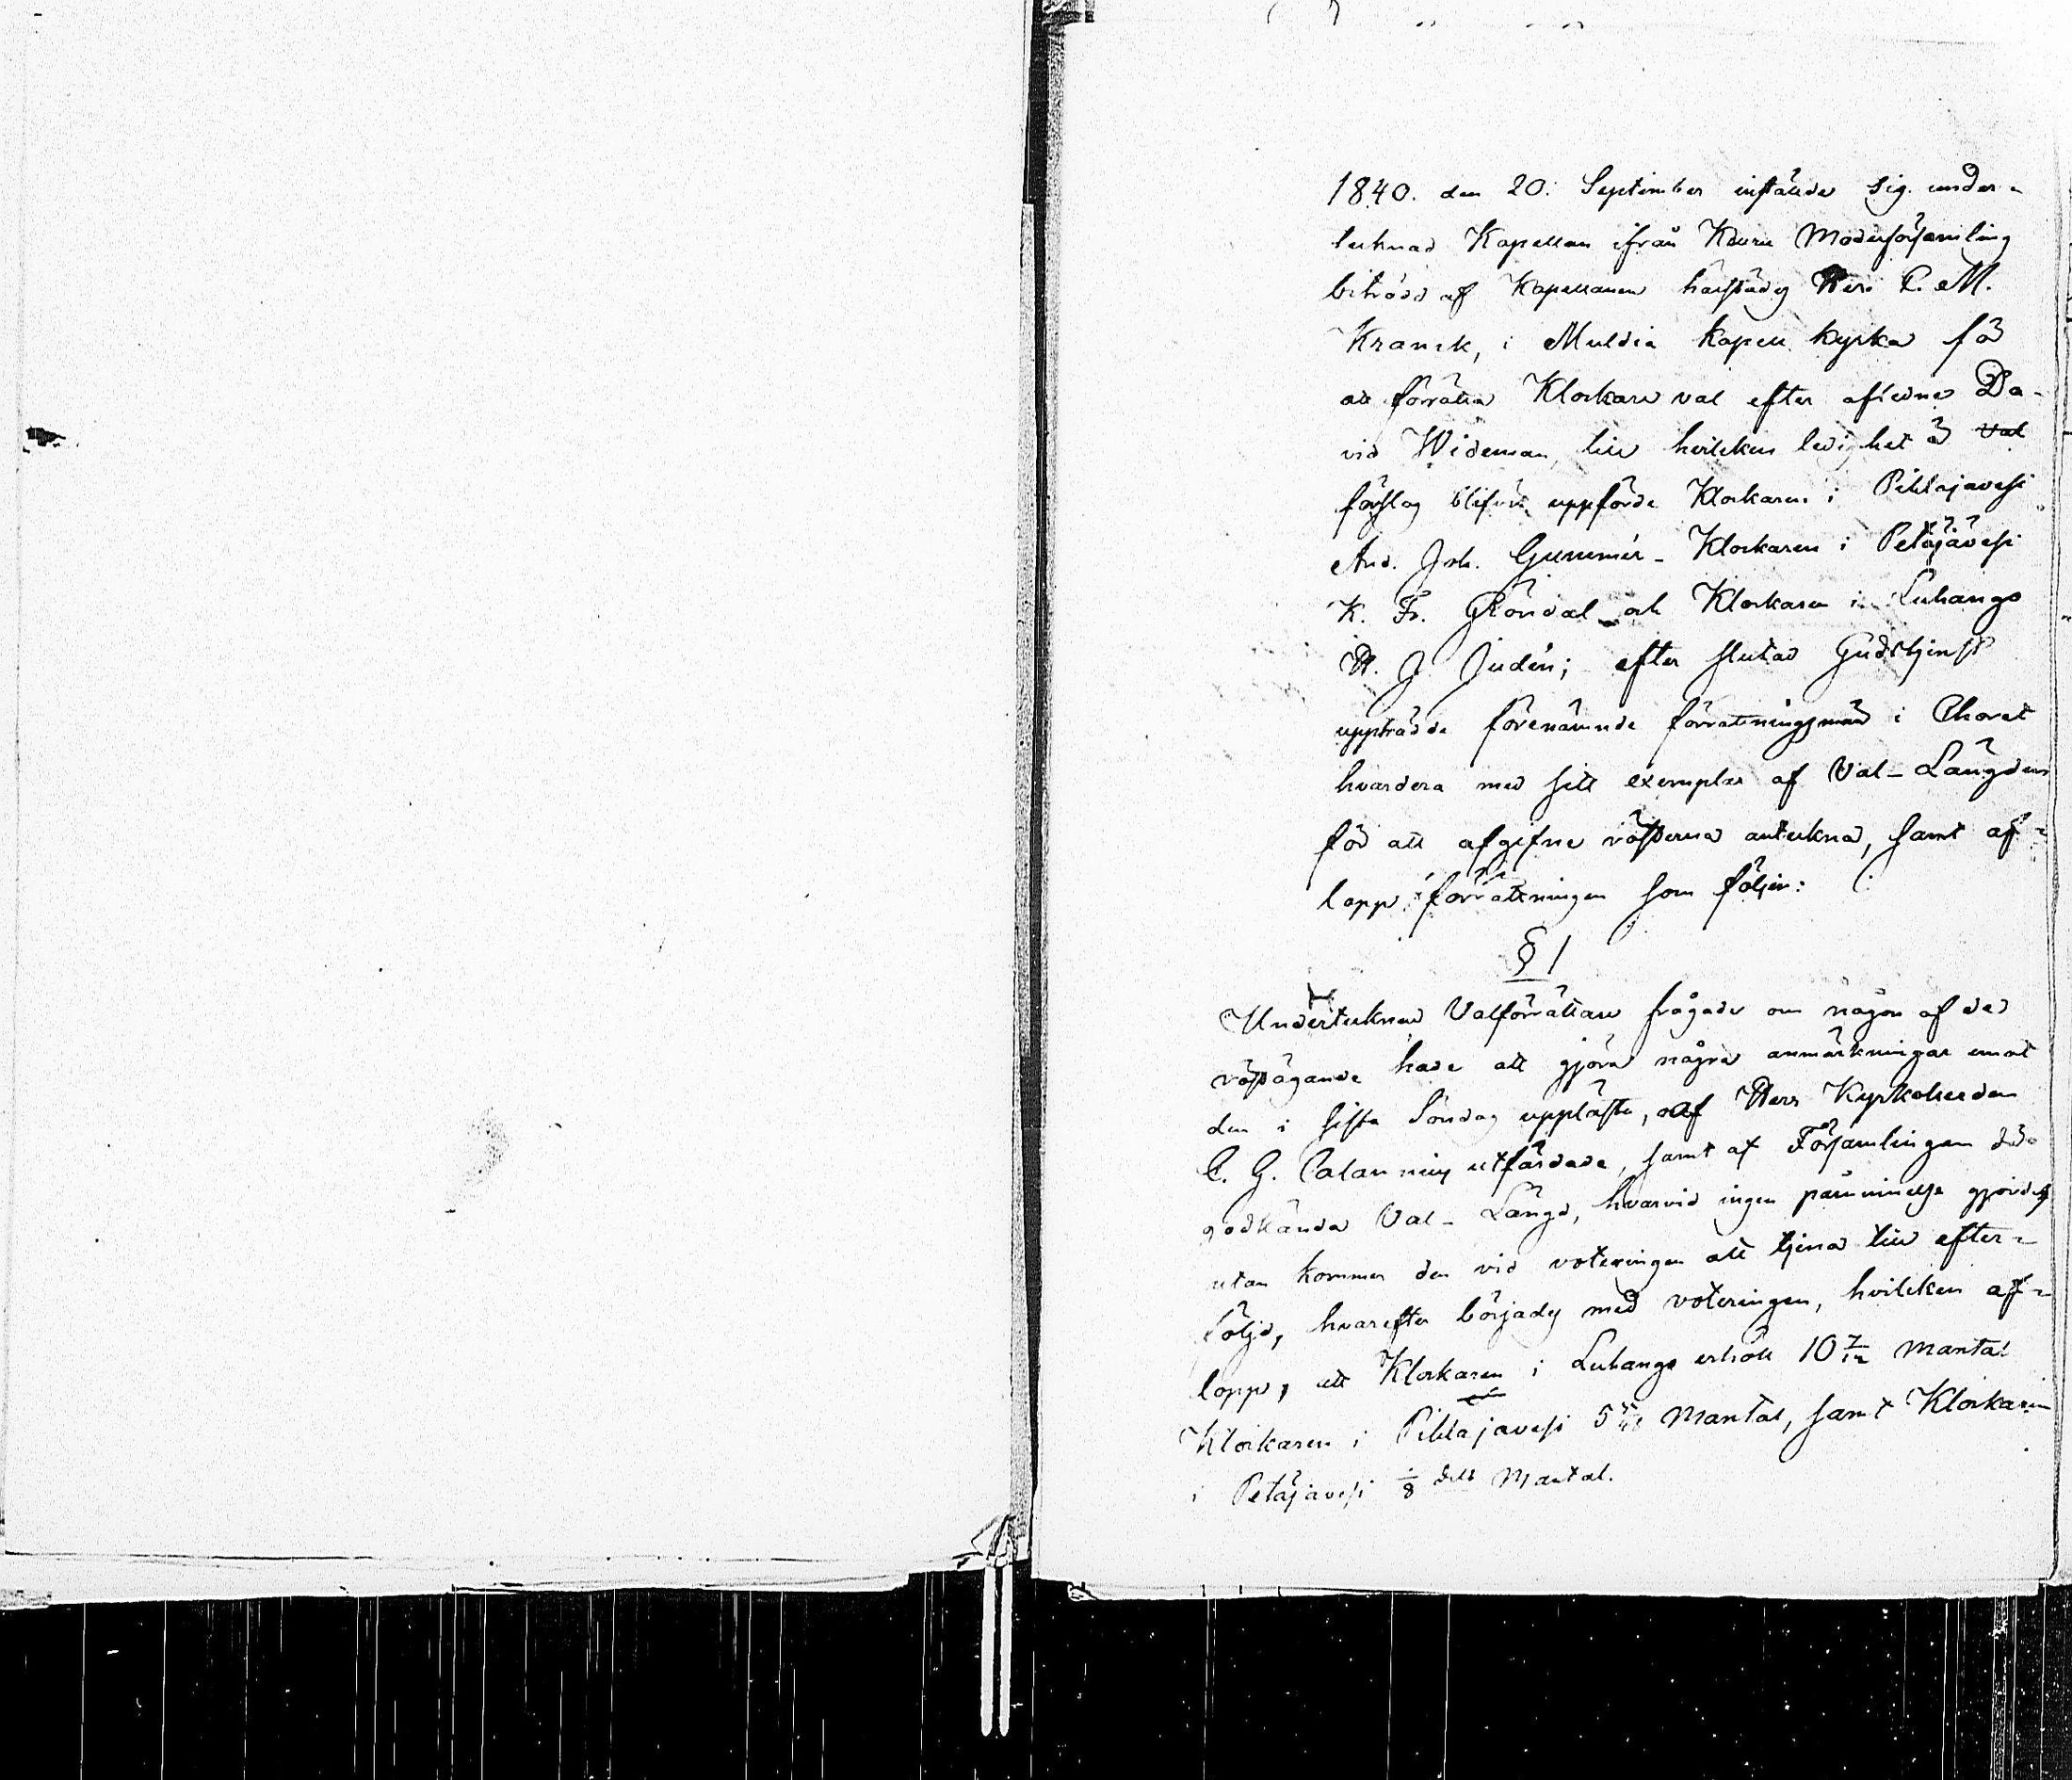 1840. den 20. September instälde sig under-
tecknad Kapellan ifrån Keuru Moderförsamling
biträdd af Kapellanen härstädes Herr C. M.
Kranck, i Muldia kapell kyrka för
att förrätta Klockare val efter aflidne Da-
vid Wideman, till hvilcken ledighet å Val
förslag blifvit uppförde Klockaren i Pihlajavesi
And. Joh. Gummér - Klockaren i Petäjävesi
K. Fr. Gröndal och Klockaren i Luhango
H. J. Judén; efter slutad Gudstjenst
uppträdde förenämnde förrättningsmän i Choret
hvardera med sitt exemplar af Val-Längden
för att afgifne rösterna anteckna, samt af-
lopp förrättningen som följer:
§ 1
Undertecknad Valförrättare frågade om någon af de
röstägande hade att gjöra några anmärkningar emot
den i sista Söndag upplästa, af Herr Kyrkoherden
C. G. utfärdade, samt af Församlingen då
godkända Val-Längd, hvarvid ingen påminnelse gjordes
utan kommer den vid voteringen att tjena till efter-
följd, hvarefter börjades med voteringen, hvilcken af-
lopp, att Klockaren i Luhango erhöll 10 7/12 mantal
Klockaren i Pihlajavesi 5 Mantal, samt Klockaren
i Petäjävesi 1/8 dels Mantal.